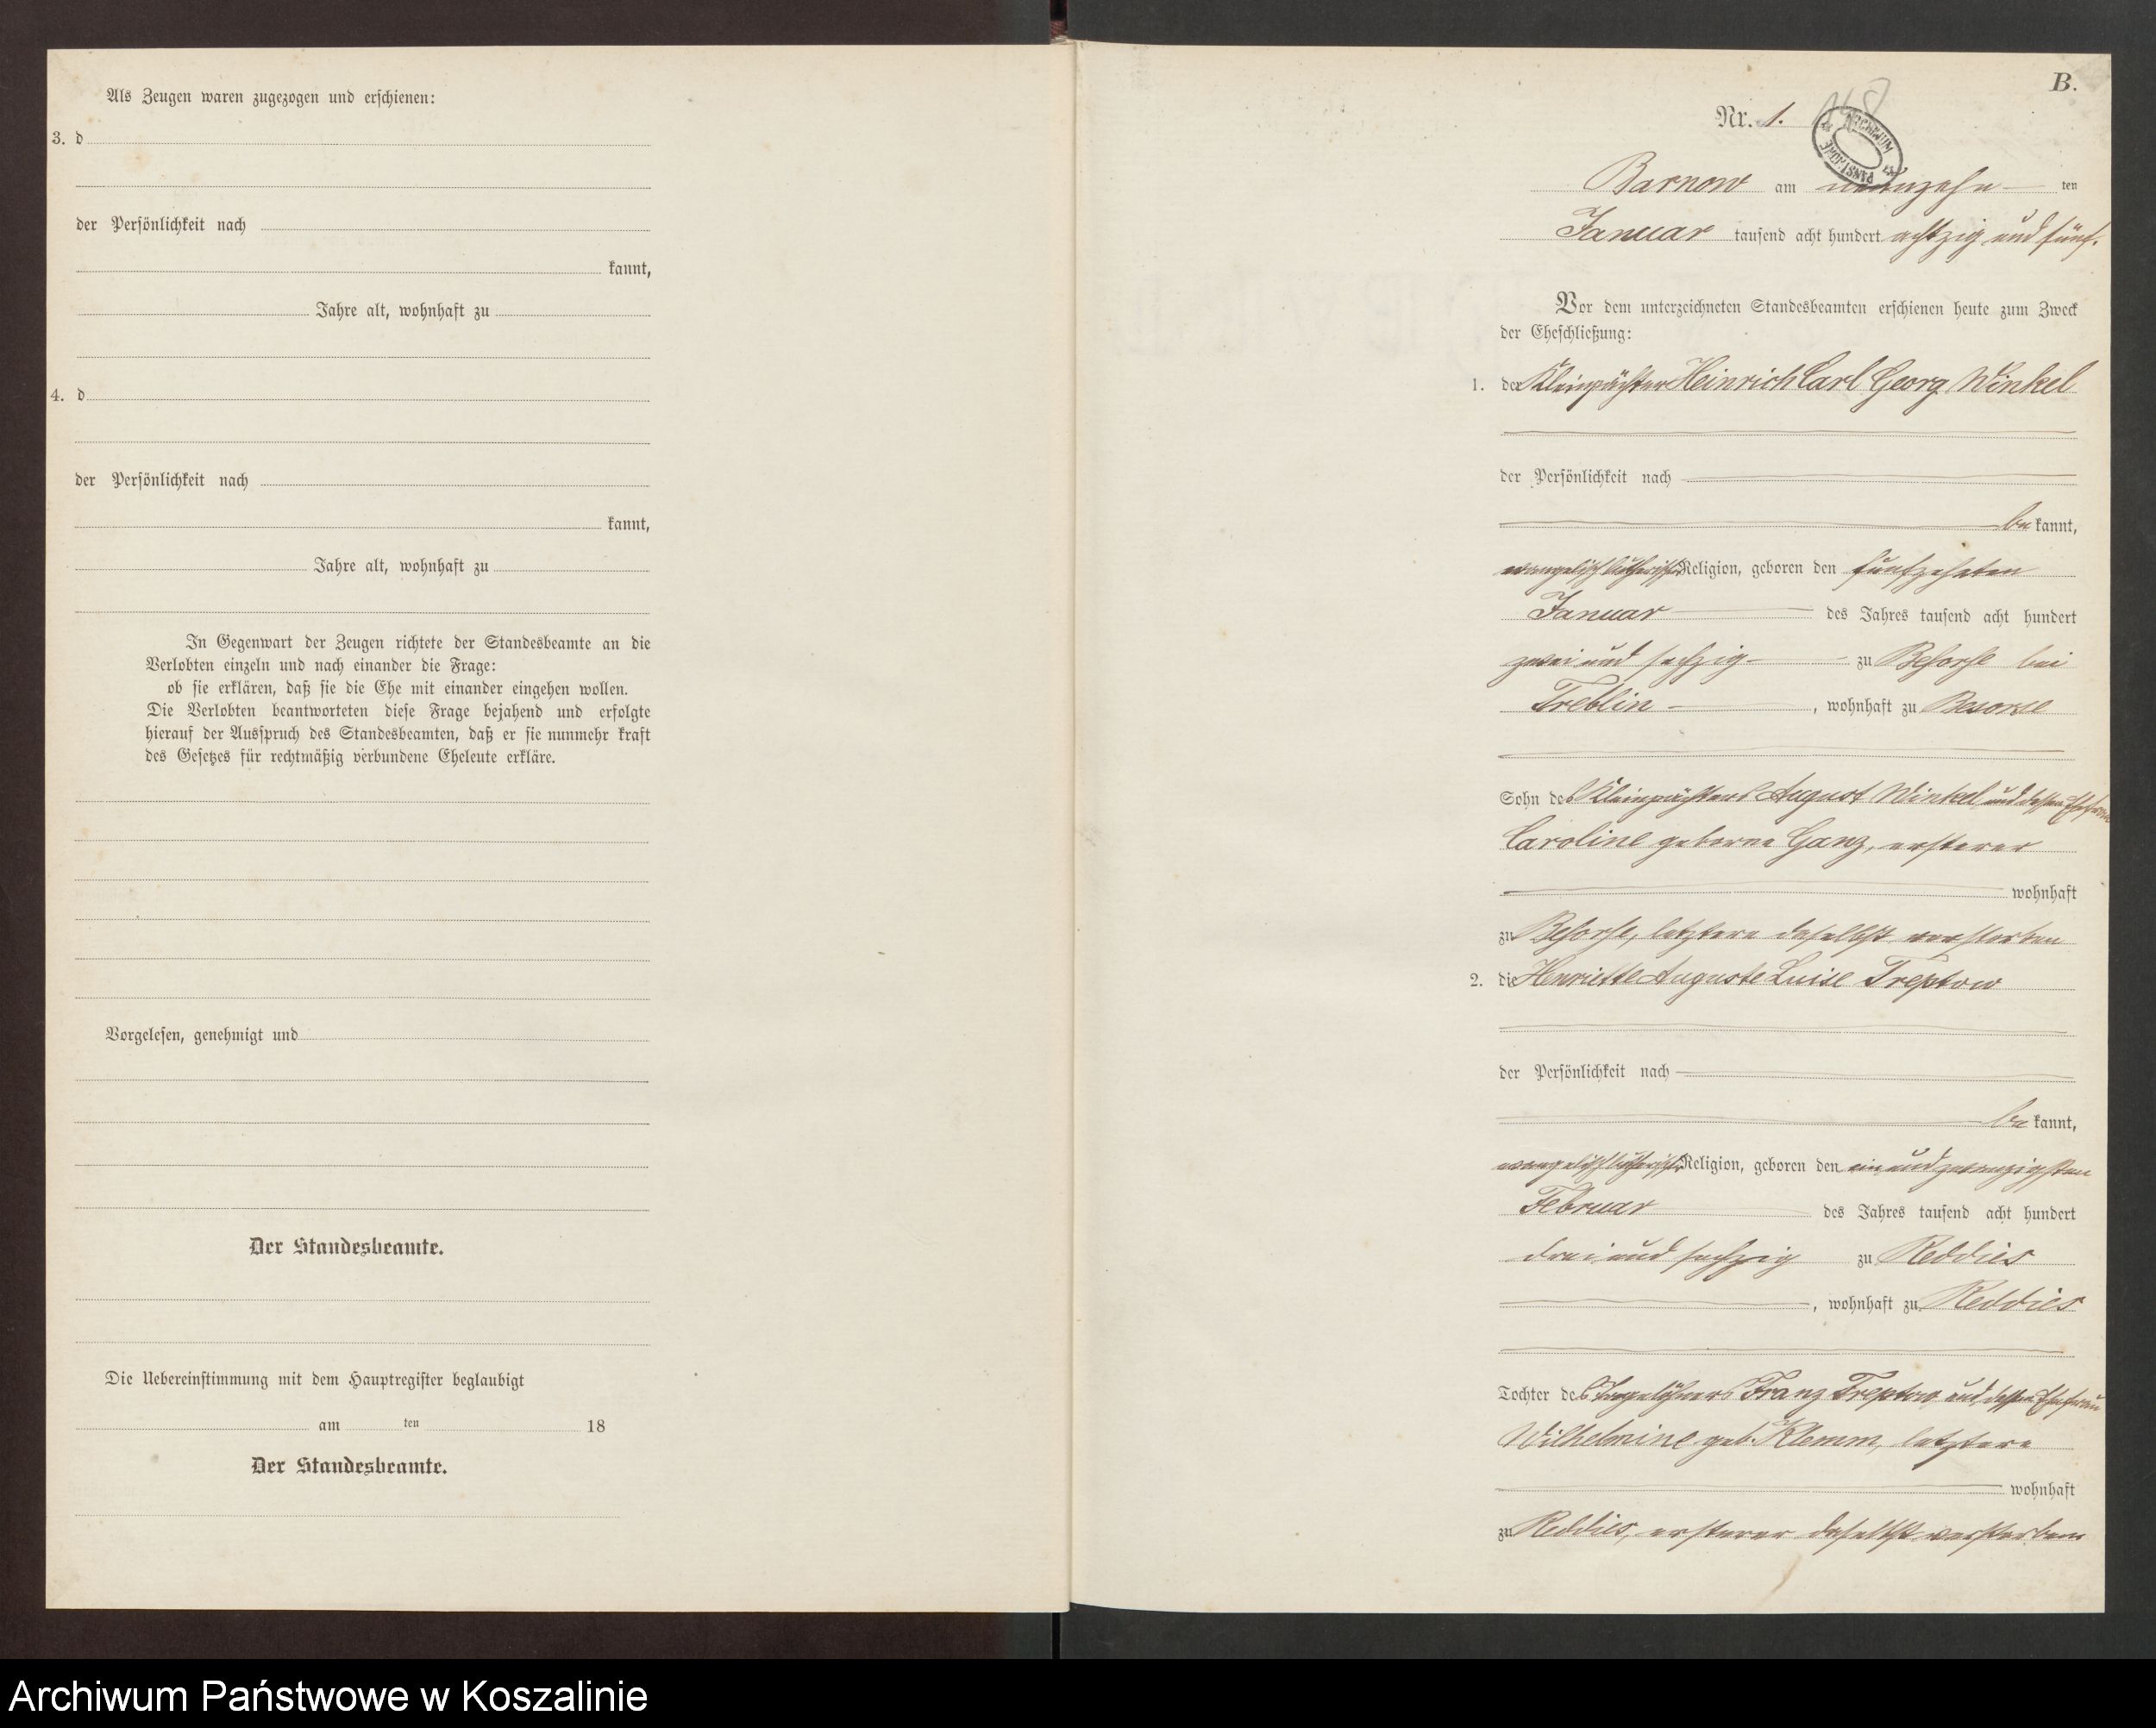 Als Zeugen waren zugezogen und erschienen:
3. d
der Persönlichkeit nach
kannt,
Jahre alt, wohnhaft zu
4. d
der Persönlichkeit nach
kannt,
Jahre alt, wohnhaft zu
In Gegenwart der Zeugen richtete der Standesbeamte an die
Verlobten einzeln und nach einander die Frage:
ob sie erklären, daß sie die Ehe mit einander eingehen wollen.
Die Verlobten beantworteten diese Frage bejahend und erfolgte
hierauf der Ausspruch des Standesbeamten, daß er sie nunmehr kraft
des Gesetzes für rechtmäßig verbundene Eheleute erkläre.
Vorgelesen, genehmigt und
Der Standesbeamte.
Die Uebereinstimmung mit dem Hauptregister beglaubigt
am ten 18
Der Standesbeamte.
B.
Nr. 1.
ARCHIWUM PAŃSTWOWE
Barnow am neunzehn ten
Januar tausend acht hundert achtzig und fünf.
Vor dem unterzeichneten Standesbeamten erschienen heute zum Zweck
der Eheschließung:
1. der Kleinpächter Heinrich Carl Georg Winkel
der Persönlichkeit nach
be kannt,
evangelisch lutherischer Religion, geboren den fünfzehnten
Januar des Jahres tausend acht hundert
zwei und sechzig zu Beßorse bei
Treblin, wohnhaft zu
Sohn des Kleinpächters August Winkel und dessen Ehefrau
Caroline geborne Ganz, ersterer
wohnhaft
zu letztere daselbst verstorben
2. die Henriette Auguste Luise Treptow
der Persönlichkeit nach
be kannt,
evangelisch lutherischer Religion, geboren den ein und zwanzigsten
Februar des Jahres tausend acht hundert
drei und sechzig zu Reddies
, wohnhaft zu Reddies
Tochter des Tagelöhners Franz Treptow und dessen Ehefrau
Wilhelmine geb. Klemm, letztere
wohnhaft
zu Reddies, ersterer daselbst verstorben
Archiwum Państwowe w Koszalinie